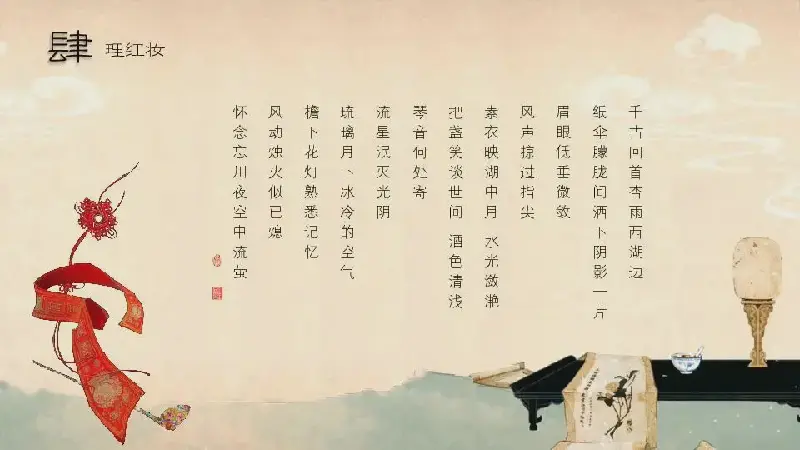 肆 理红妆
千古回首杏雨西湖边
纸伞朦胧间洒下阴影一片
眉眼低垂微敛
风声掠过指尖
素衣映湖中月 水光潋滟
把盏笑谈世间 酒色清浅
琴音何处寄
流星泯灭光阴
琉璃月下冰冷的空气
檐下花灯熟悉记忆
风动烛火似已熄
怀念忘川夜空中流萤